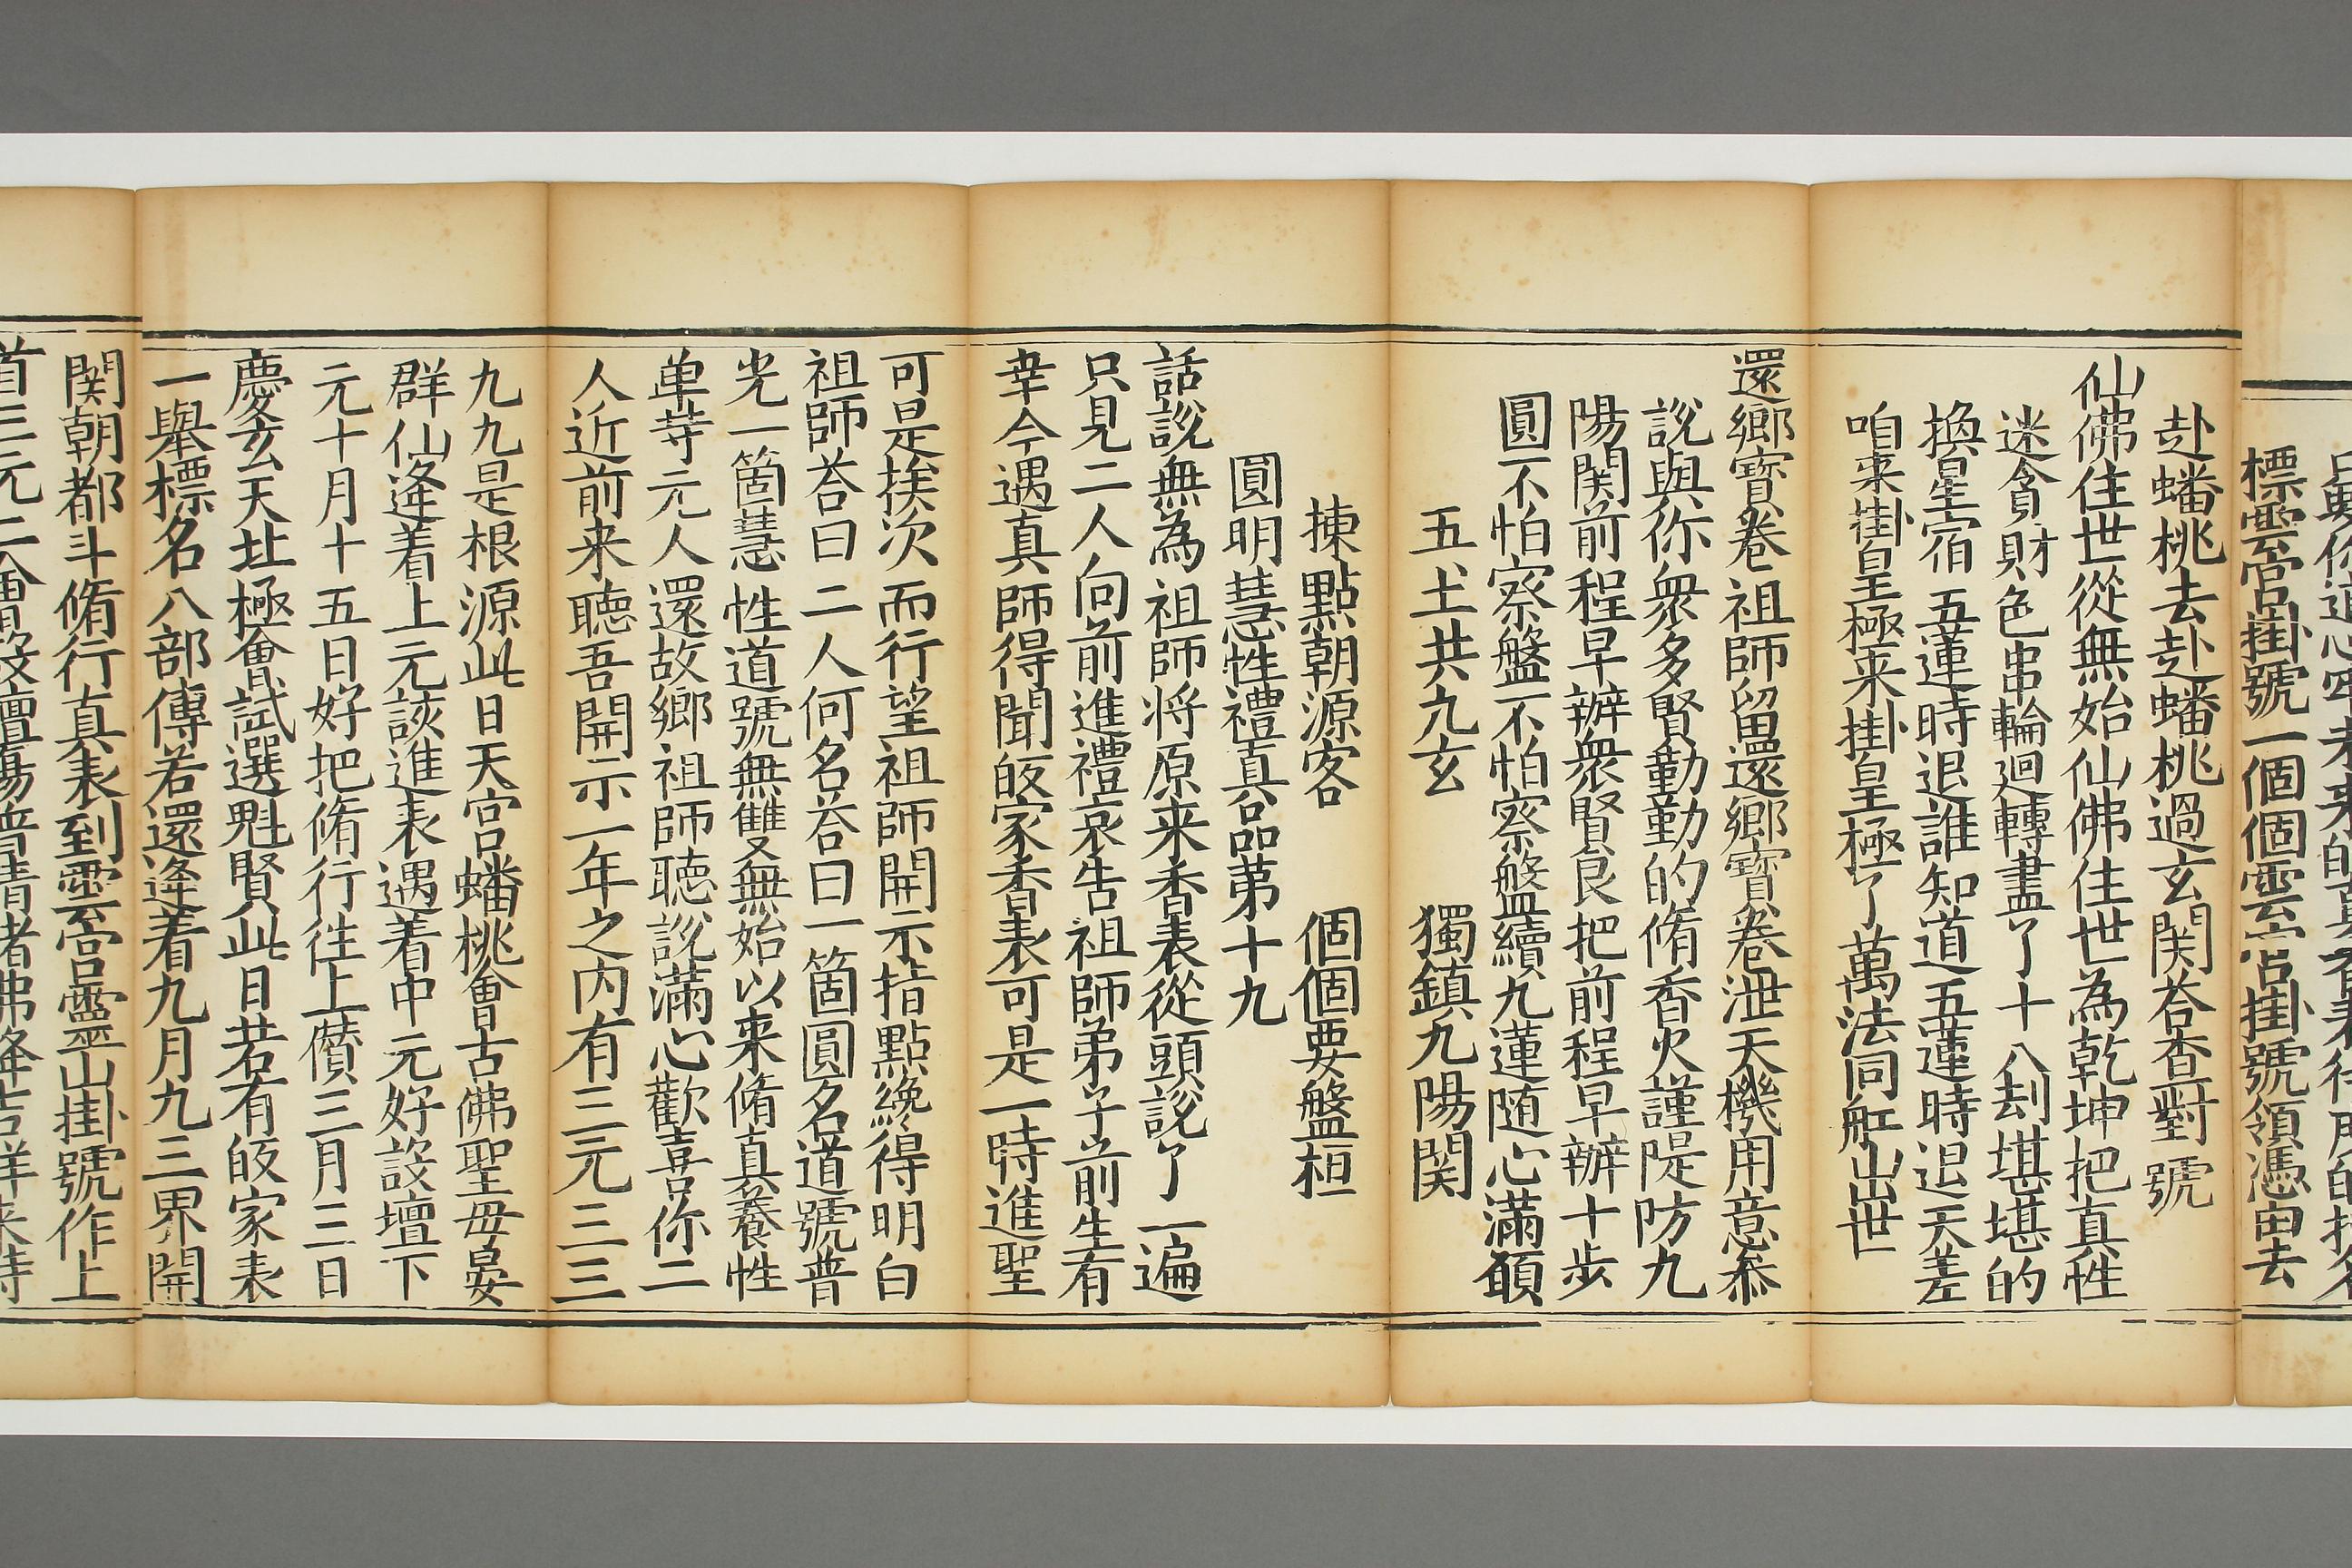 標雲宫掛號一個個雲宫掛號領憑由去
赴蟠桃去赴蟠桃過玄関荅查對號
仙佛住世從無始仙佛住世為乾坤把真性
迷貪財色串輪廻轉盡了十八刦堪堪的
換星宿五蓮時退誰知道五蓮時退天差
咱来掛皇極来掛皇極了萬法同舡出世
還鄉寳卷祖師留還鄉寳卷泄天機用意叅
說與你衆多賢勤勤的脩香火謹隄防九
陽関前程早辦衆賢良把前程早辦十步
圓不怕察盤不怕察盤續九蓮随心滿願
五土共九玄　獨鎮九陽関
揀點朝源客　個個要盤桓
圓明慧性禮真品第十九
話說無為祖師将原来香表從頭說了一遍
只見二人向前進禮哀告祖師弟子前生有
幸今遇真師得聞皈家香表可是一時進聖
可是挨次而行望祖師開示指點纔得明白
祖師荅曰二人何名荅曰一箇圓名道號普
光一箇慧性道號無雙無始以来脩真養性
单等元人還故鄉祖師聽說滿心歡喜你二
人近前来聽吾開示一年之内有三元三三
九九是根源此日天宫蟠桃會古佛聖母宴
群仙逄着上元該進表遇着中元好設壇下
元十月十五日好把脩行徃上儹三月三日
慶玄天北極會試選魁賢此日若有皈家表
一舉標名八部傳若還逄着九月九三界開
関朝都斗脩行真表到雲宫靈山掛號作上